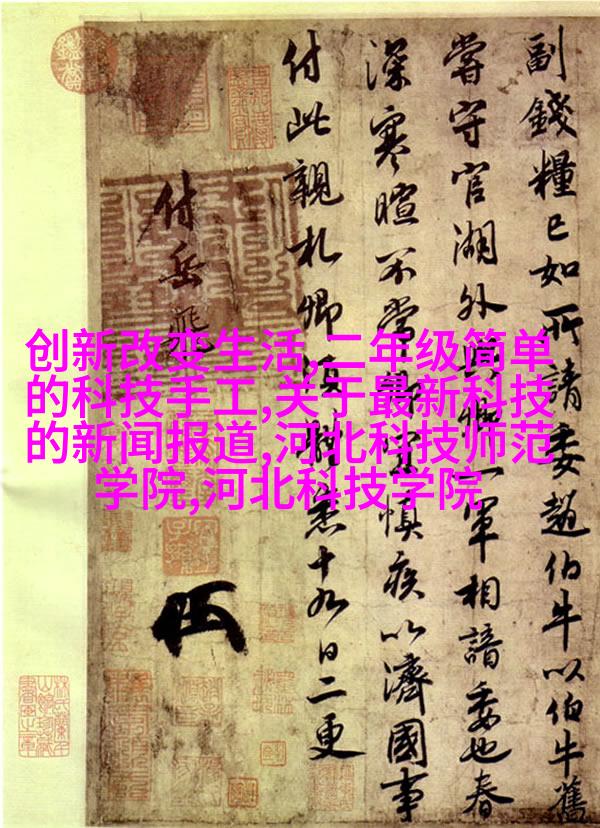 创新改变生活,二年级简单
的科技手工,关于最新科技
的新闻报道,河北科技师范
学院,河北科技学院
副錢糧已如所請委趙伯牛以伯牛舊
嘗守官湖外一軍相諳委也春
深寒暄不常慎疾以濟國事
付此親札卿須悉十九日二更
付岳飛